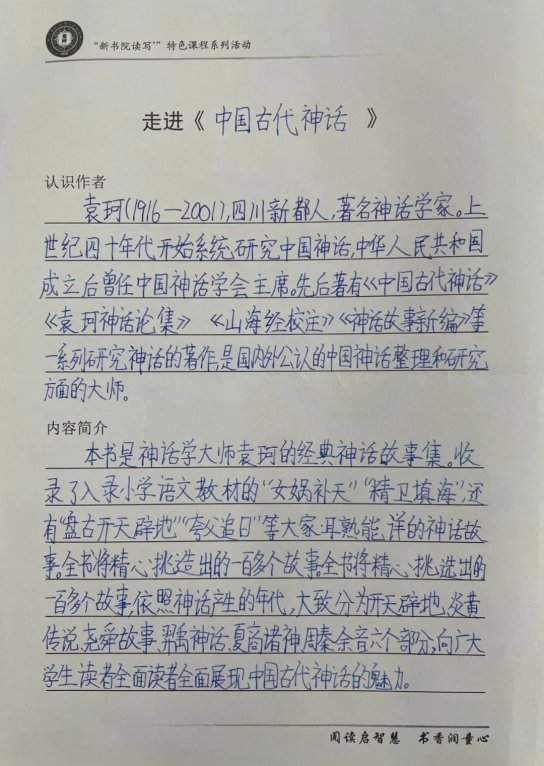 "新书院读写"特色课程系列活动
走进《 中国古代神话 》
认识作者
袁珂(1916—2001),四川新都人,著名神话学家。上
世纪四十年代开始系统研究中国神话,中华人民共和国
成立后曾任中国神话学会主席。先后著有《中国古代神话》
《袁珂神话论集》 《山海经校注》《神话故事新编》等
一系列研究神话的著作,是国内外公认的中国神话整理和研究
方面的大师。
内容简介
本书是神话学大师袁珂的经典神话故事集。收
录了入录小学语文教材的"女娲补天""精卫填海",还
有"盘古开天辟地""夸父追日"等大家耳熟能详的神话故
事。全书将精心挑选出的一百多个故事。全书将精心挑选出的
一百多个故事,依照神话产生的年代,大致分为开天辟地、炎黄
传说、尧舜故事、羿禹神话、夏商诸神、周秦余音六个部分,向广大
学生读者全面读者全面展现中国古代神话的魅力。
阅读启智慧 书香润童心